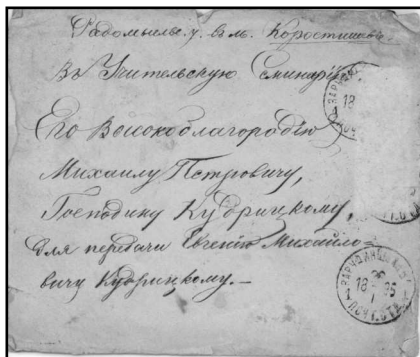 Радомысль. у. въ м. Коростишевъ
Въ Учительскую Семинарію
Его Высокоблагородію
Михаилу Петровичу,
Господину Кудрицкому,
для передачи Евгенію Михайло=
вичу Кудрицкому.—
18
18 95